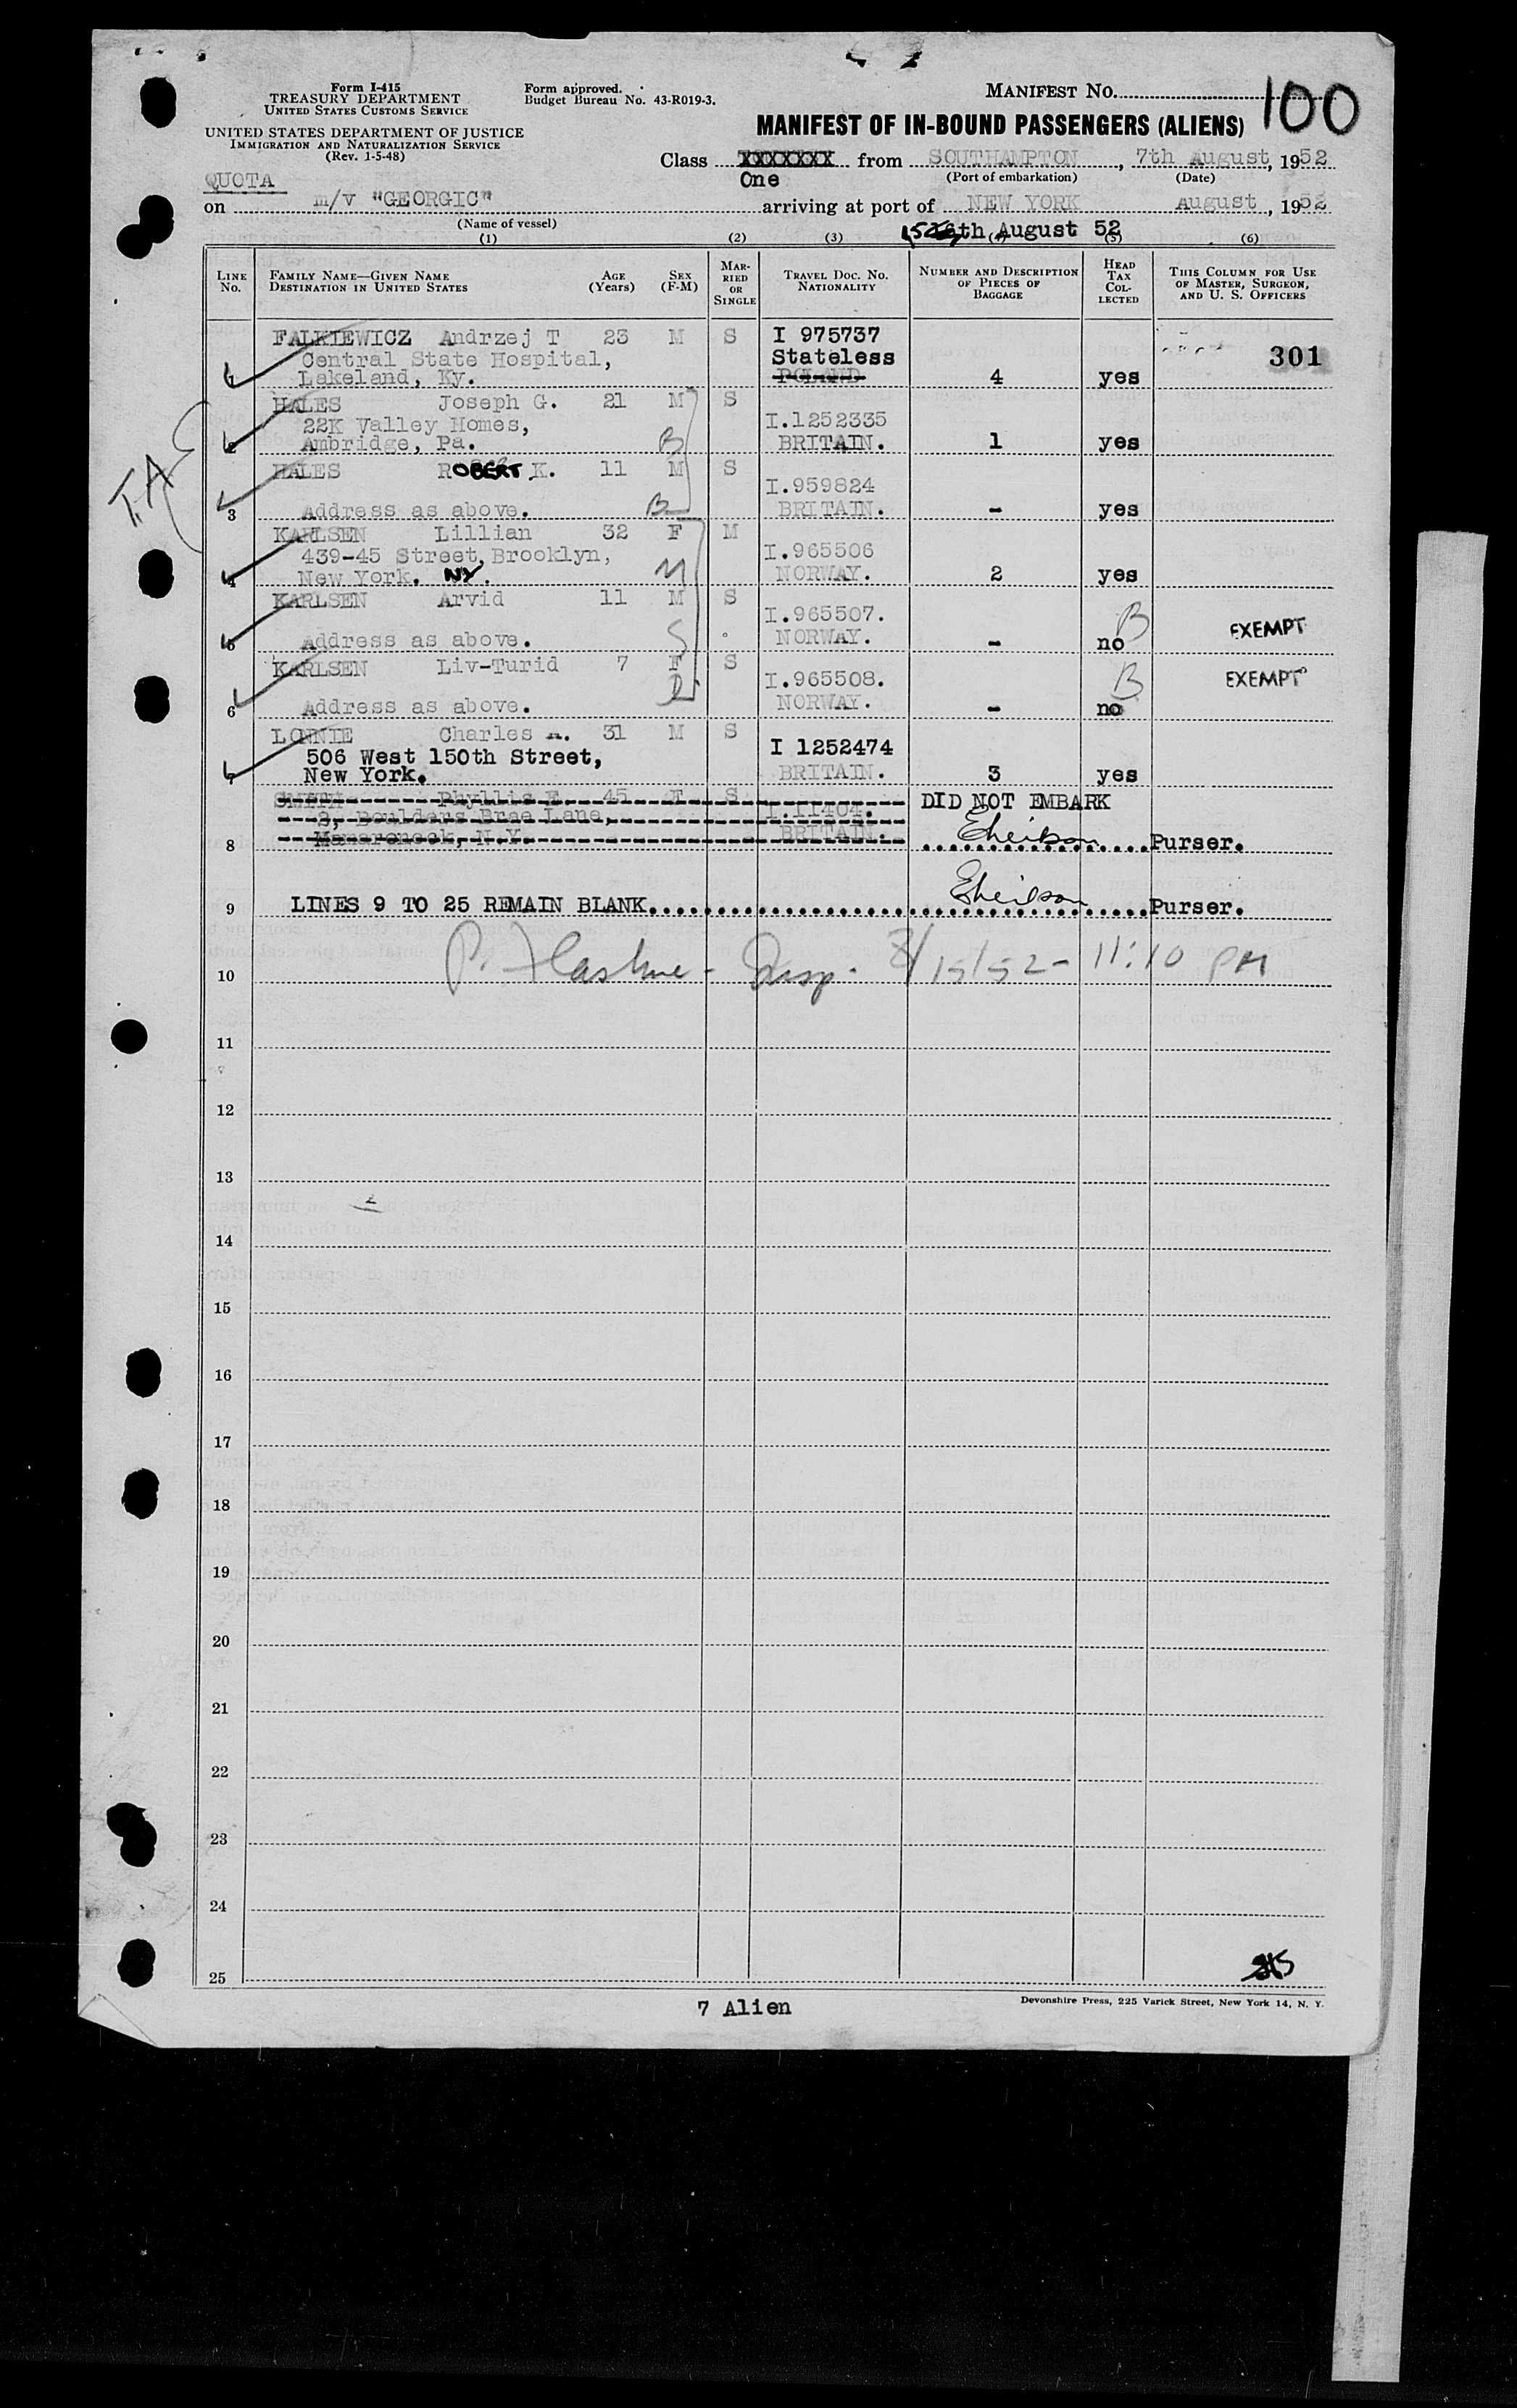 Form I-415
TREASURY DEPARTMENT
UNITED STATES CUSTOMS SERVICE
UNITED STATES DEPARTMENT OF JUSTICE
IMMIGRATION AND NATURALIZATION SERVICE
(Rev. 1-5-48)
Form approved.
Budget Bureau No. 43-R019-3.
MANIFEST NO. 100
MANIFEST OF IN-BOUND PASSENGERS (ALIENS)
Class XXXXXXX from SOUTHAMPTON, 7th August, 1952
One (Port of embarkation) (Date)
QUOTA
on m/v "GEORGIC" arriving at port of NEW YORK August, 1952
(Name of vessel)
15 th August 52
(1) (2) (3) (4) (5) (6)
LINE NO.
FAMILY NAME—GIVEN NAME
DESTINATION IN UNITED STATES
AGE (Years)
SEX (F-M)
MARRIED OR SINGLE
TRAVEL DOC. NO.
NATIONALITY
NUMBER AND DESCRIPTION OF PIECES OF BAGGAGE
HEAD TAX COLLECTED
THIS COLUMN FOR USE OF MASTER, SURGEON, AND U. S. OFFICERS
FALKIEWICZ Andrzej T 23 M S I 975737
Central State Hospital, Stateless 301
1 Lakeland, Ky. POLAND 4 yes
T.A
HALES Joseph G. 21 M S
22K Valley Homes, I.1252335
2 Ambridge, Pa. B BRITAIN. 1 yes
HALES ROBERT K. 11 M S
I.959824
3 Address as above. B BRITAIN. - yes
KARLSEN Lillian 32 F M
439-45 Street, Brooklyn, I.965506
4 New York. NY. M NORWAY. 2 yes
KARLSEN Arvid 11 M S
I.965507. B EXEMPT
5 Address as above. S NORWAY. - no
KARLSEN Liv-Turid 7 F S
I.965508. B EXEMPT
6 Address as above. D NORWAY. - no
LONNIE Charles A. 31 M S
506 West 150th Street, I 1252474
7 New York. BRITAIN. 3 yes
SMITH Phyllis E. 45 F S DID NOT EMBARK
3, Boulders Brae Lane, I.11404.
8 Mamaroneck, N.Y. BRITAIN. Purser.
9 LINES 9 TO 25 REMAIN BLANK. Purser.
10 P. Insp. 8/15/52 - 11:10 PM
11
12
13
14
15
16
17
18
19
20
21
22
23
24
25
7 Alien
Devonshire Press, 225 Varick Street, New York 14, N. Y.